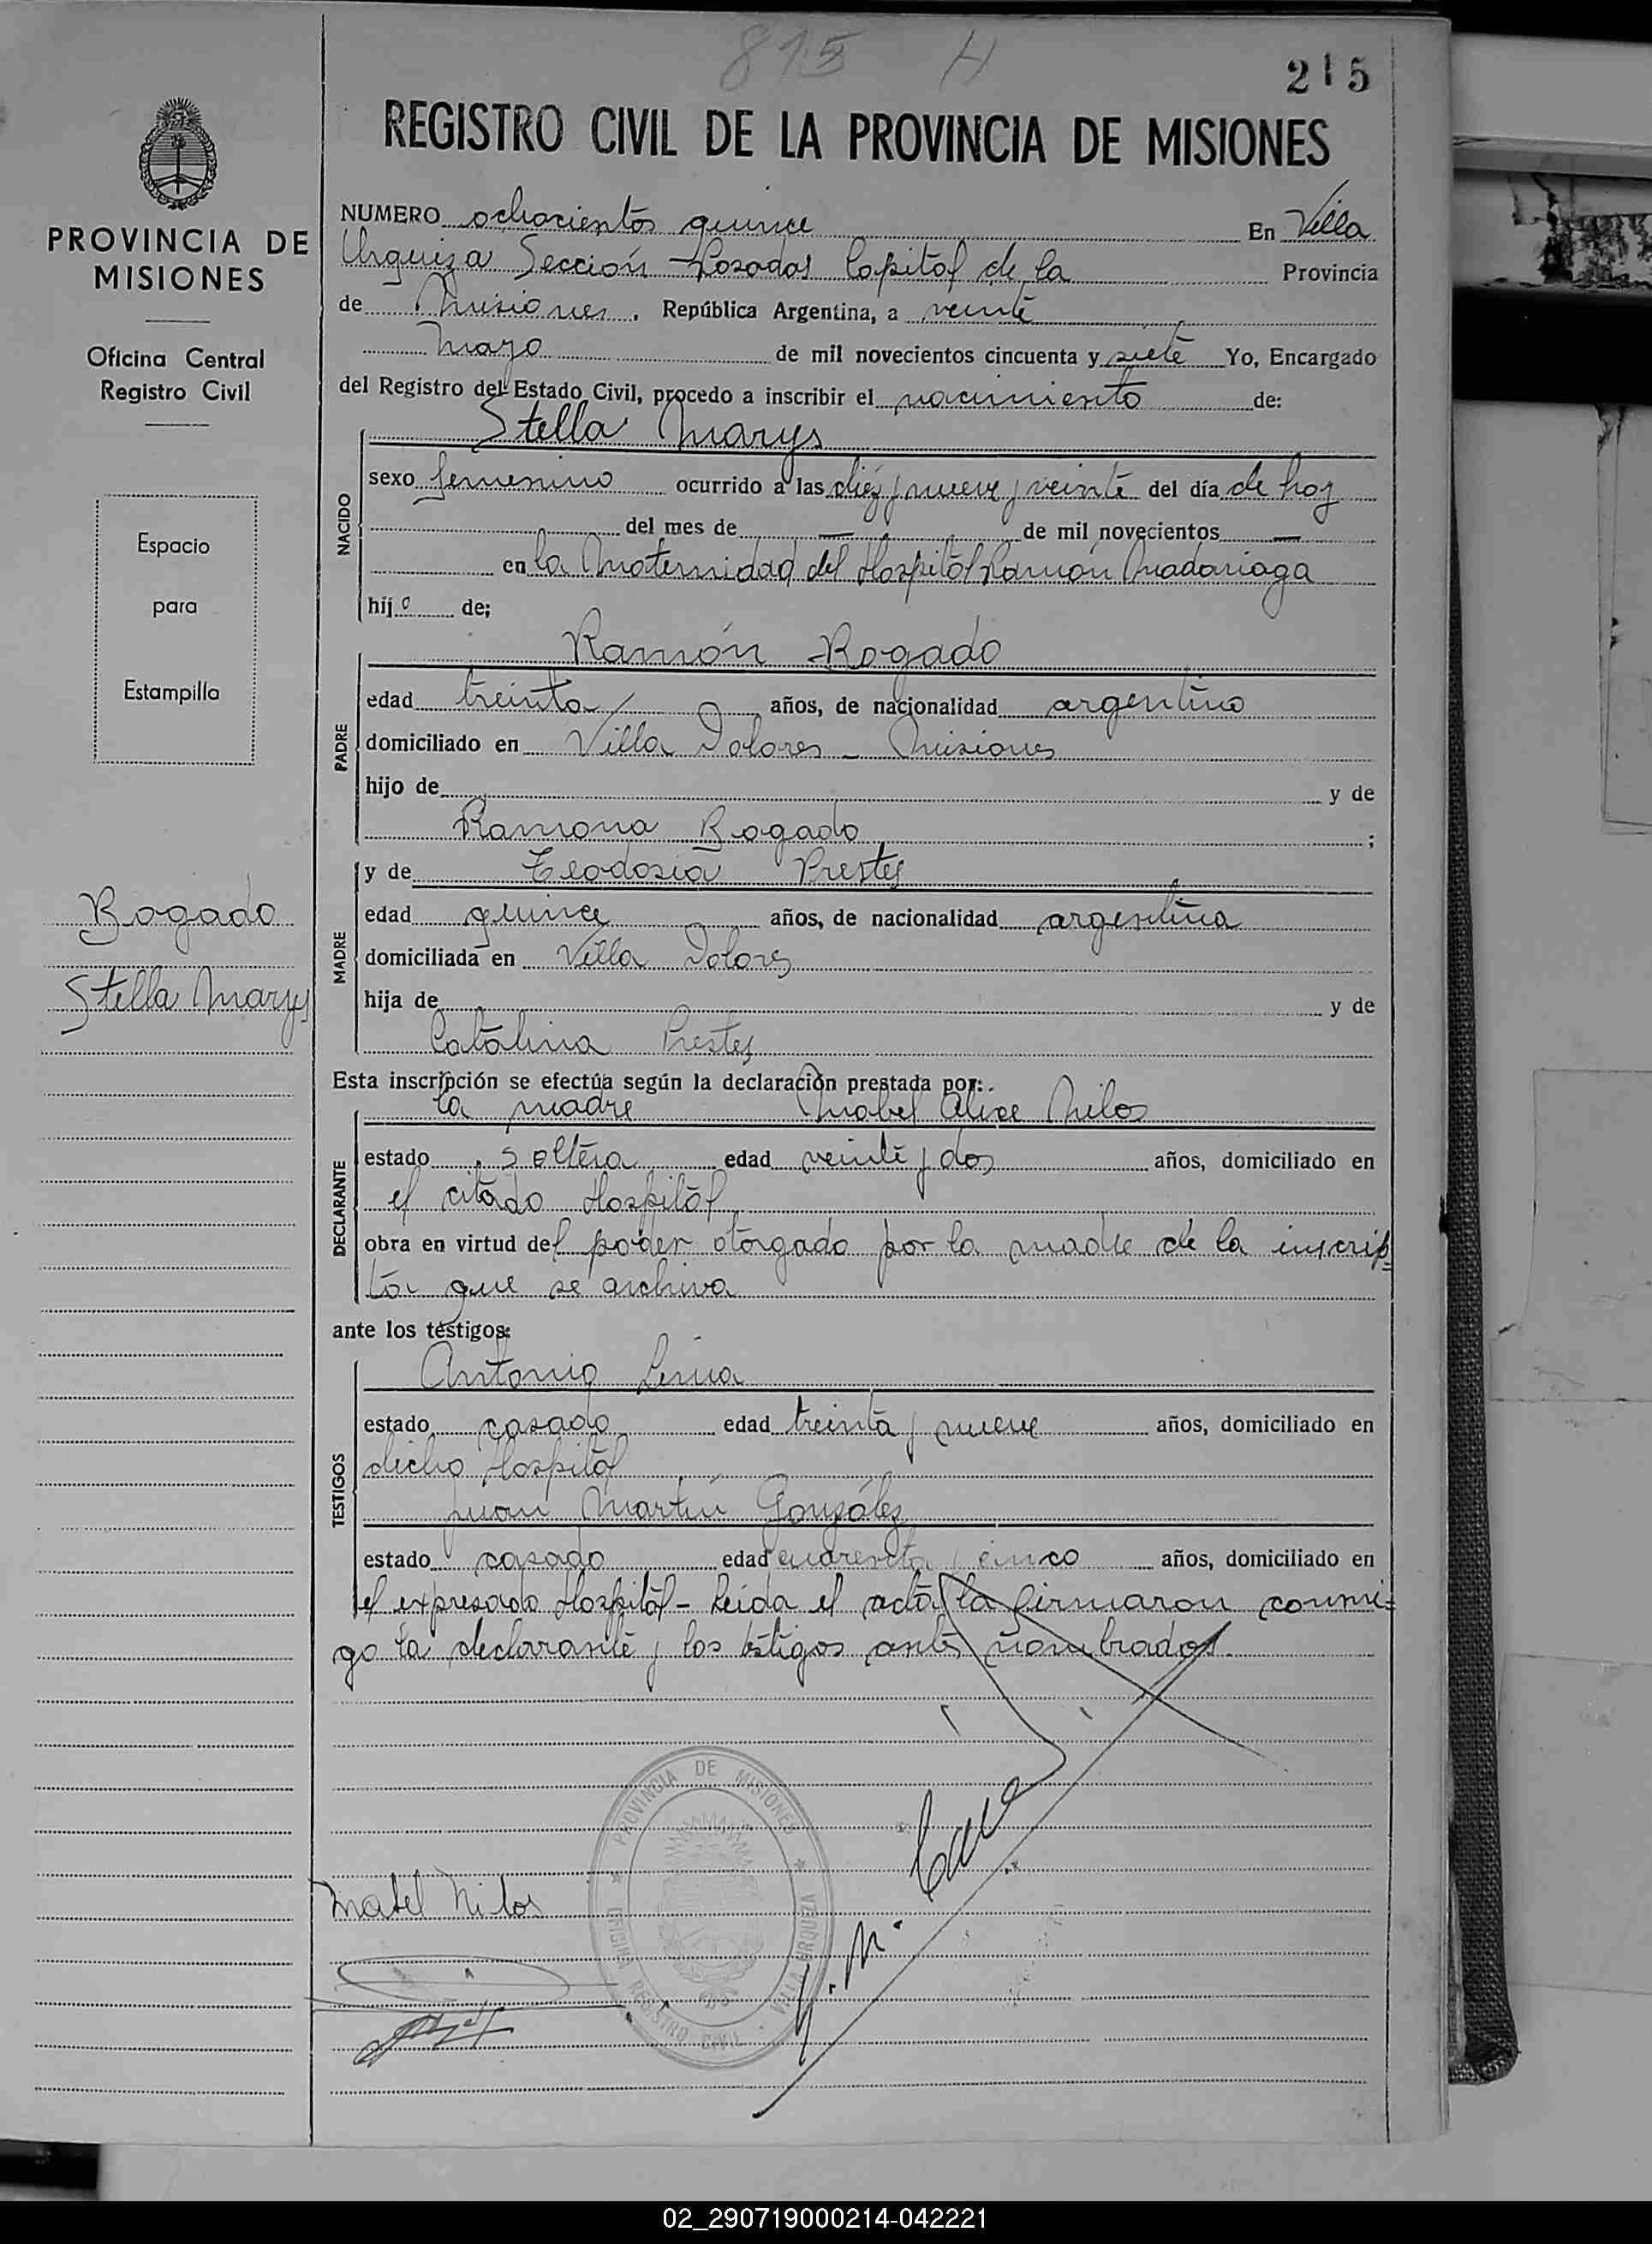 815 H
215
REGISTRO CIVIL DE LA PROVINCIA DE MISIONES
PROVINCIA DE
MISIONES
Oficina Central
Registro Civil
Espacio
para
Estampilla
Bogado
Stella Marys
NUMERO ochocientos quince En Villa
Urquiza Sección Posadas Capital de la Provincia
de Misiones. República Argentina, a veinte
Mayo de mil novecientos cincuenta y siete Yo, Encargado
del Registro del Estado Civil, procedo a inscribir el nacimiento de:
Stella Marys
NACIDO
sexo femenino ocurrido a las diez y nueve y veinte del día de hoy
del mes de — de mil novecientos —
en la Maternidad del Hospital Ramón Madariaga
hija de;
Ramón Bogado
PADRE
edad treinta años, de nacionalidad argentino
domiciliado en Villa Dolores - Misiones
hijo de y de
Ramona Bogado ;
y de Teodosia Prestes
MADRE
edad quince años, de nacionalidad argentina
domiciliada en Villa Dolores
hija de y de
Catalina Prestes
Esta inscripción se efectúa según la declaración prestada por:
la madre Mabel Alice Nilos
DECLARANTE
estado soltera edad veinte y dos años, domiciliado en
el citado Hospital
obra en virtud del poder otorgado por la madre de la inscrip-
ta que se archiva
ante los testigos:
Antonio Lema
TESTIGOS
estado casado edad treinta y nueve años, domiciliado en
dicho Hospital
Juan Martín González
estado casado edad cuarenta y cinco años, domiciliado en
el expresado Hospital - Leída el acta la firmaron conmi-
go la declarante y los testigos antes nombrados.
PROVINCIA DE MISIONES
OFICINA REGISTRO CIVIL - VILLA URQUIZA
Mabel Nilos
02_290719000214-042221